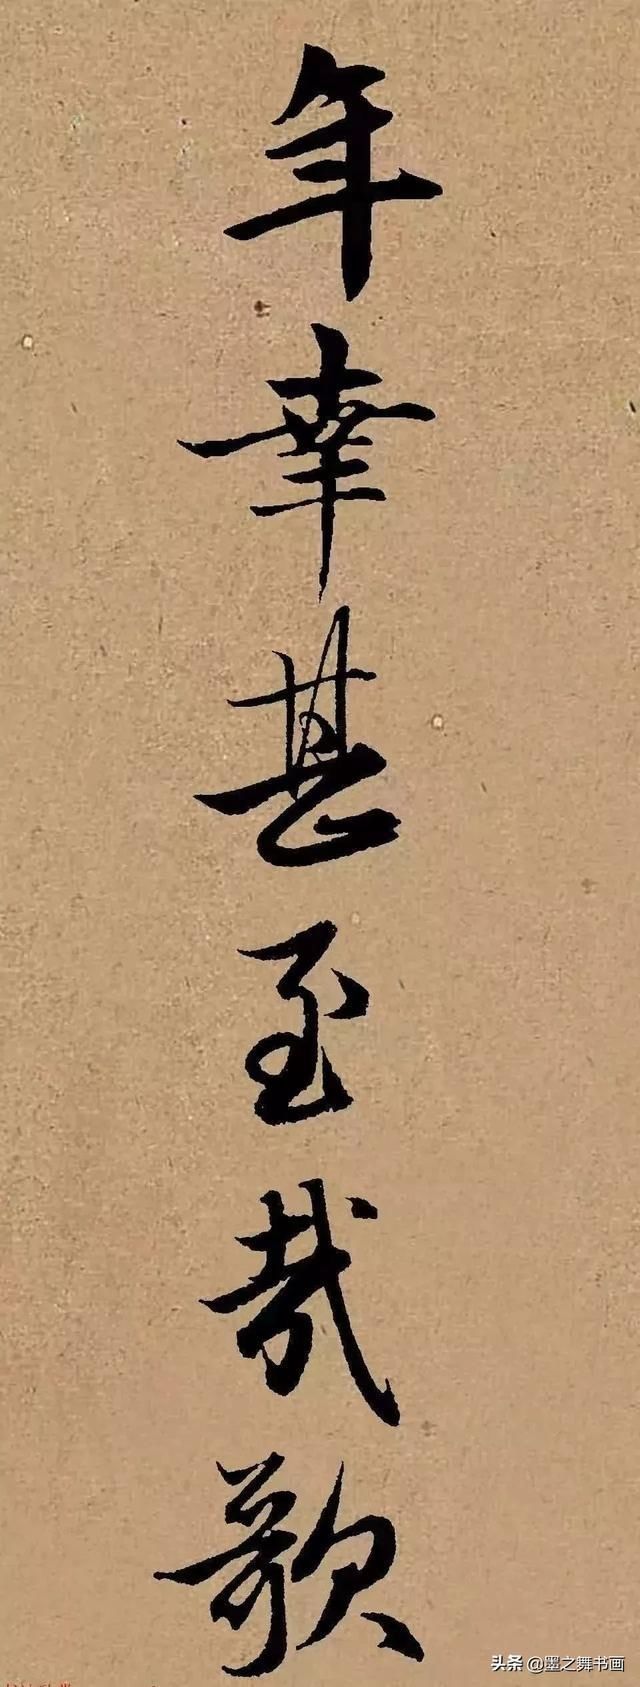 年幸甚至哉歌
头条 @墨之舞书画